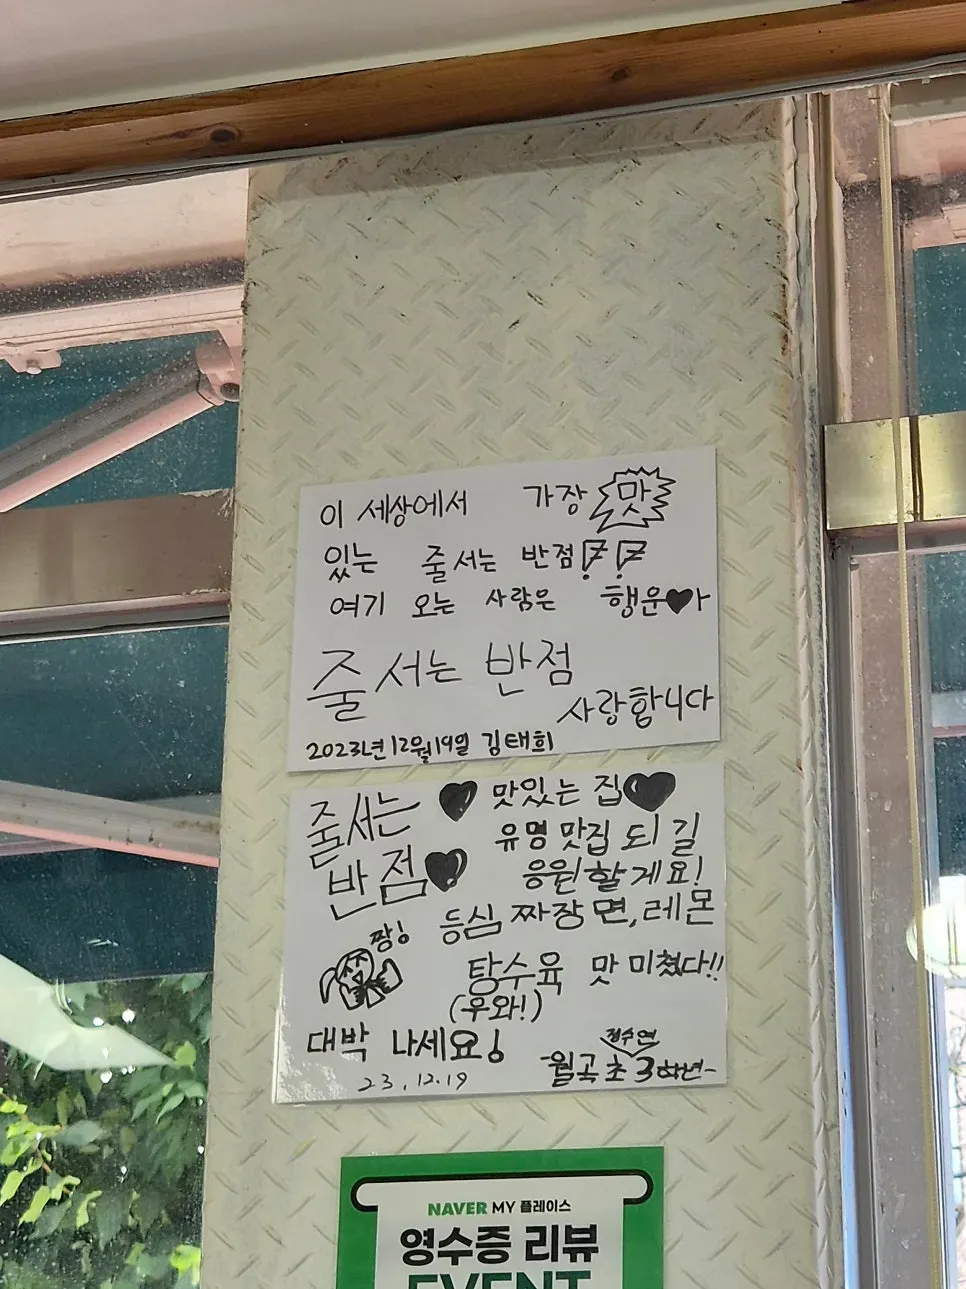 이 세상에서 가장 맛
있는 줄서는 반점!!
여기 오는 사람은 행운♥아
줄서는 반점
사랑합니다
2023년 12월 19일 김태희
줄서는 ♥ 맛있는 집♥
반점♥ 유명 맛집 되길
응원할게요!
짱! 등심 짜장면, 레몬
탕수육 맛 미쳤다!!
(우와!)
대박 나세요!
정수연
-월곡초 3학년-
23.12.19
NAVER MY 플레이스
영수증 리뷰
EVENT